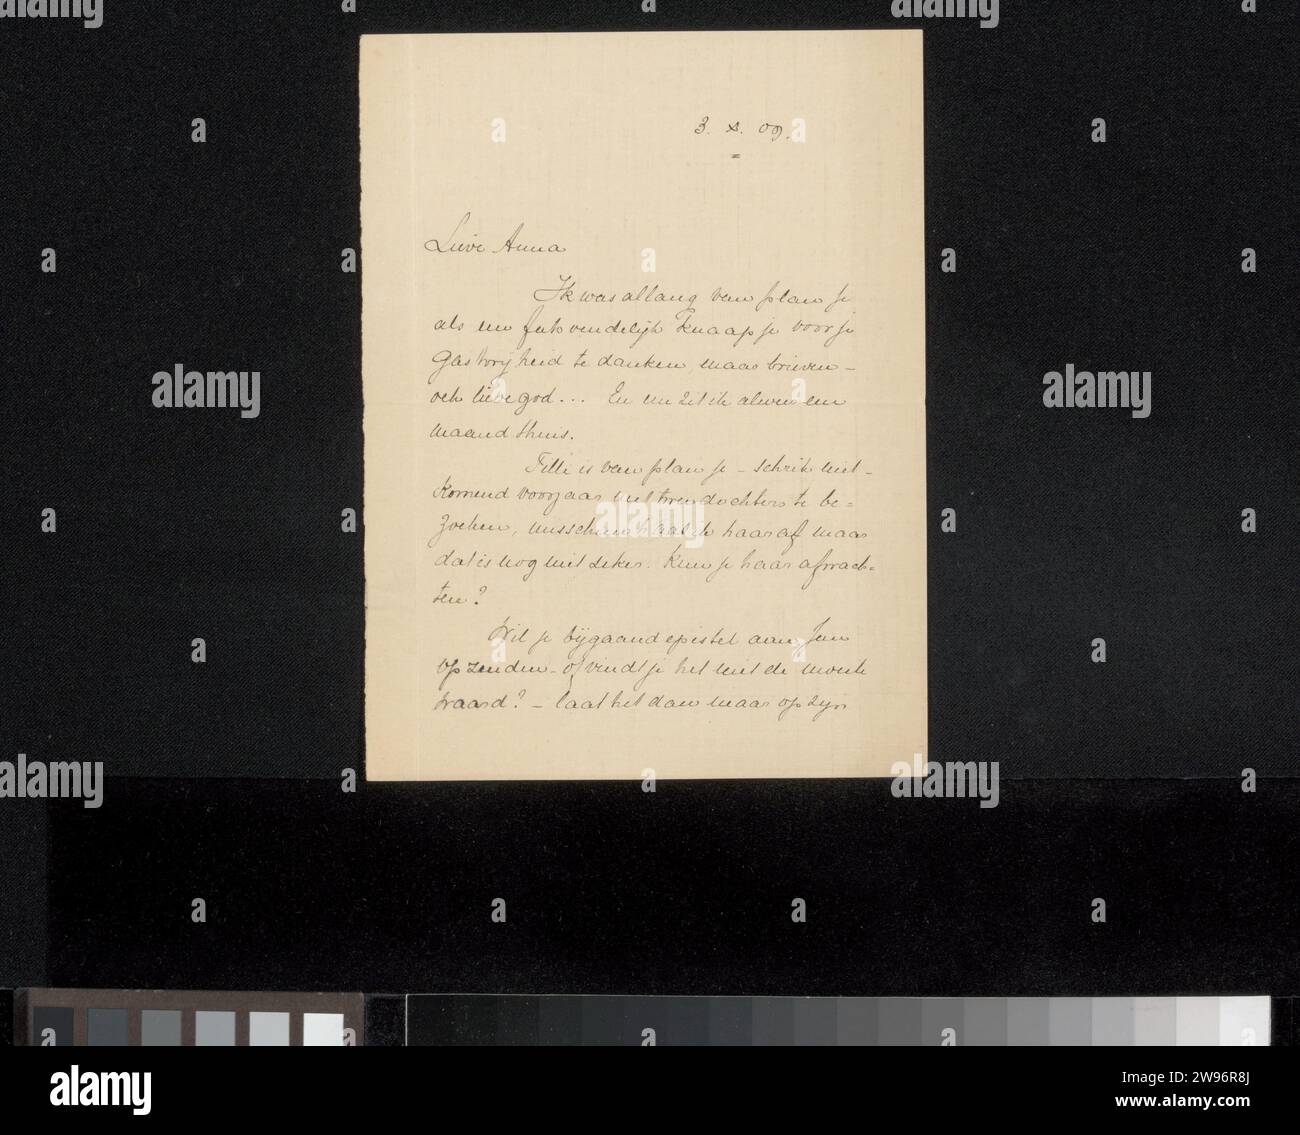 3. X. 09.
Lieve Anna
Ik was allang van plan je
als een fatsoendelijk knaapje voor je
Gastvrijheid te danken, maar brieven -
och lieve god... En nu zit ik al weer een
maand thuis.
Tilli is van plan je - schrik niet -
komend voorjaar met twee dochters te be=
zoeken, misschien haal ik haar af maar
dat is nog niet zeker. Kun je haar afwach=
ten?
Wil je bijgaand epistel aan Jan
op zenden - of vindt je het niet de moeite
waard? - laat het dan maar op zijn
alamy
alamy
Image ID: 2W96R8J
www.alamy.com